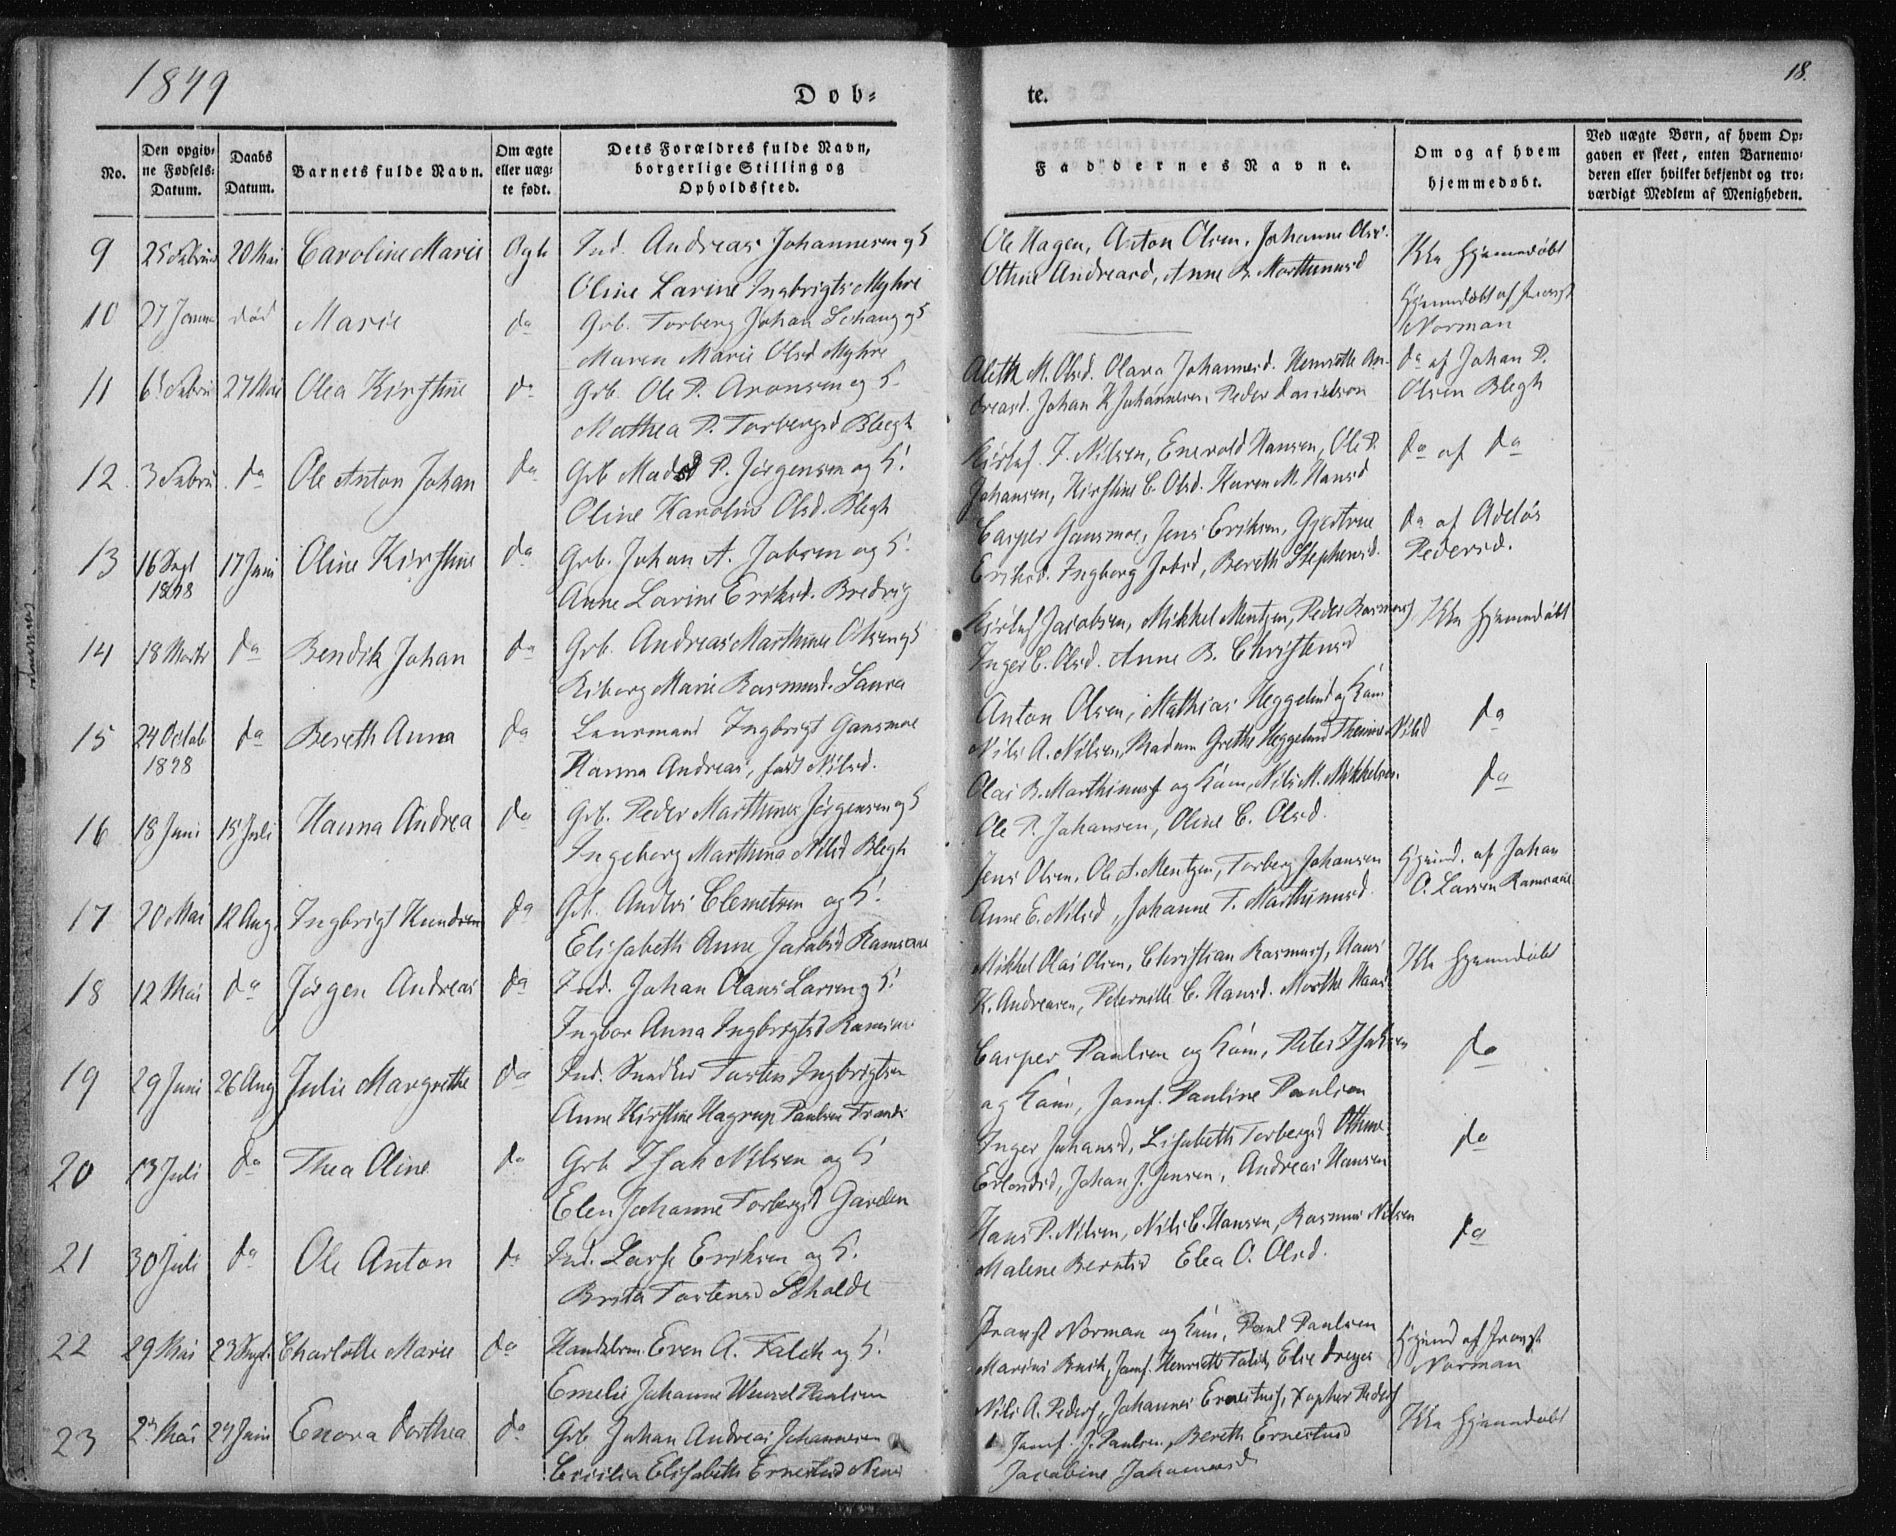 1849
Døb=
te.
18.
No.
Den opgiv=
ne Fødsels=
Datum.
Daabs
Datum.
Barnets fulde Navn.
Om ægte
eller uæg=
te født.
Dets Forældres fulde Navn,
borgerlige Stilling og
Opholdssted.
Faddernes Navne.
Om og af hvem
hjemmedøbt.
Ved uægte Børn, af hvem Op=
gaven er skeet, enten Barnemo=
deren eller hvilket bekjendt og tro=
værdigt Medlem af Menigheden.
9 25 Februar 20 Mai Caroline Marie Ægte Ind. Andreas Johannesen og H
Oline Lavine Ingbrigts Myhre
Ole Hagen, Anton Olsen, Johanne Olsd.
Othine Andreasd, Anne B. Marthinusd
Ikke hjemmedøbt
10 27 Januar død Marie do Grb. Torberg Johan Schang og H
Maren Marie Olsd Myhre
Hjemmdøbt af Provst
Norman
11 6 Februr 27 Mai Olea Kirstine do Grb. Ole P. Aronsen og H
Mathea P. Torbergsd Blegh
Aleth M. Olsd. Olava Johannesd. Henrette An-
dreasd. Johan K Johannesen, Peder Danielsen
do af Johan P.
Olsen Blegh
12. 3 Februr do Ole Anton Johan do Grb Mads P. Jørgensen og H.
Oline Karoline Olsd. Blegh
J. Nilsen, Enevold Hansen, Ole P.
Johansen, Kirstine C. Olsd. Karen M. Hansd
do af do
13 16 Sept 17 Juni Oline Kirstine do Grb. Johan A. Jobsen og H.
1848
Anne Lavine Eriksd. Bredvig
Casper Gansmoe, Jens Eriksen, Gjertrue
Eriksd. Ingborg Jobsd, Bereth Stephensd.
do af Adeløs
Pedersd.
14 18 Marts do Bendik Johan do Grb. Andreas Marthinus Olsen og H
Marie Rasmusd. Saura
Jacobsen, Mikkel Mentzen, Peder Rasmuss
Inger C. Olsd. Anne B. Christensd
Ikke hjemmdøbt
15 24 Octob do Bereth Anna do Lensmand Ingbrigt Gansmoe
1848
Hanna Andrea, født Nilsd.
Anton Olsen, Mathias Heggelund og Kone
Nils A. Nilsen, Madam Grethe Heggelund Nilsd
do
16 18 Juni 15 Juli Hanna Andrea do Grb. Peder Marthinus Jørgensen og H
Ingeborg Marthina Nilsd Blegh
Olai B. Marthinuss og Kone, Nils M. Mikkelsen.
Ole P. Johansen, Oline C. Olsd.
do
17 20 Mai 12 Aug Ingbrigt do Grb. Anders Clemetsen og H.
Elisabeth Anne Jacobsd
Jens Olsen. Ole A. Mentzen, Torberg Johansen
Anne E. Nilsd, Johanne T. Marthinusd.
Hjemmd. af Johan
O. Larsen
18 12 Mai do Jørgen Andreas do Ind. Johan Olaus Larsen og H.
Ingbor Anna Ingbrigtsd
Mikkel Olai Olsen, Christian Rasmuss, Hans
K. Andreasen, Peternille C. Hansd. Marthe Hansd
Ikke hjemmdøbt
19 29 Juni 26 Aug Julie Margrethe do Ind. Snedker Tosten Ingbrigtsen
Anne Kirstine Hagrup Paulsen
Casper Paulsen og Kone, Peter
og Kone, Jomf. Pauline Paulsen
do
20 13 Juli do Thea Oline do Grb Isak Nilsen og H
Elen Johanne Torbergsd Garden
Inger Johansd, Lisabeth Torbergsd Othine
Erlandsd, Johan J. Jensen, Andreas Hansen
do
21 30 Juli do Ole Anton do Ind. Lars Eriksen og H.
Brita Tostensd
Hans P. Nilsen, Nils C. Hansen, Rasmus Nilsen
Malene Berntsd Elea O. Olsd.
do
22 29 Mai 23 Sept. Charlotte Marie do Handelsm. Even A. Falch og H.
Emelie Johanne Paulsen
Provst Norman og Kone, Paul Paulsen
Marius Buch, Jomf. Henriette Falch, Elise Dreyer
Hjemmd af Provst
Norman
23 2 Mai 24 Juni Enora Dorthea do Grb Johan Andreas Johannesen
Elisabeth Ernestusd
Nils A. Peders, Johannes Ernestuss,
Jomf. J. Paulsen, Bereth Ernestusd
Jacobine Johannesd
Ikke hjemmdøbt